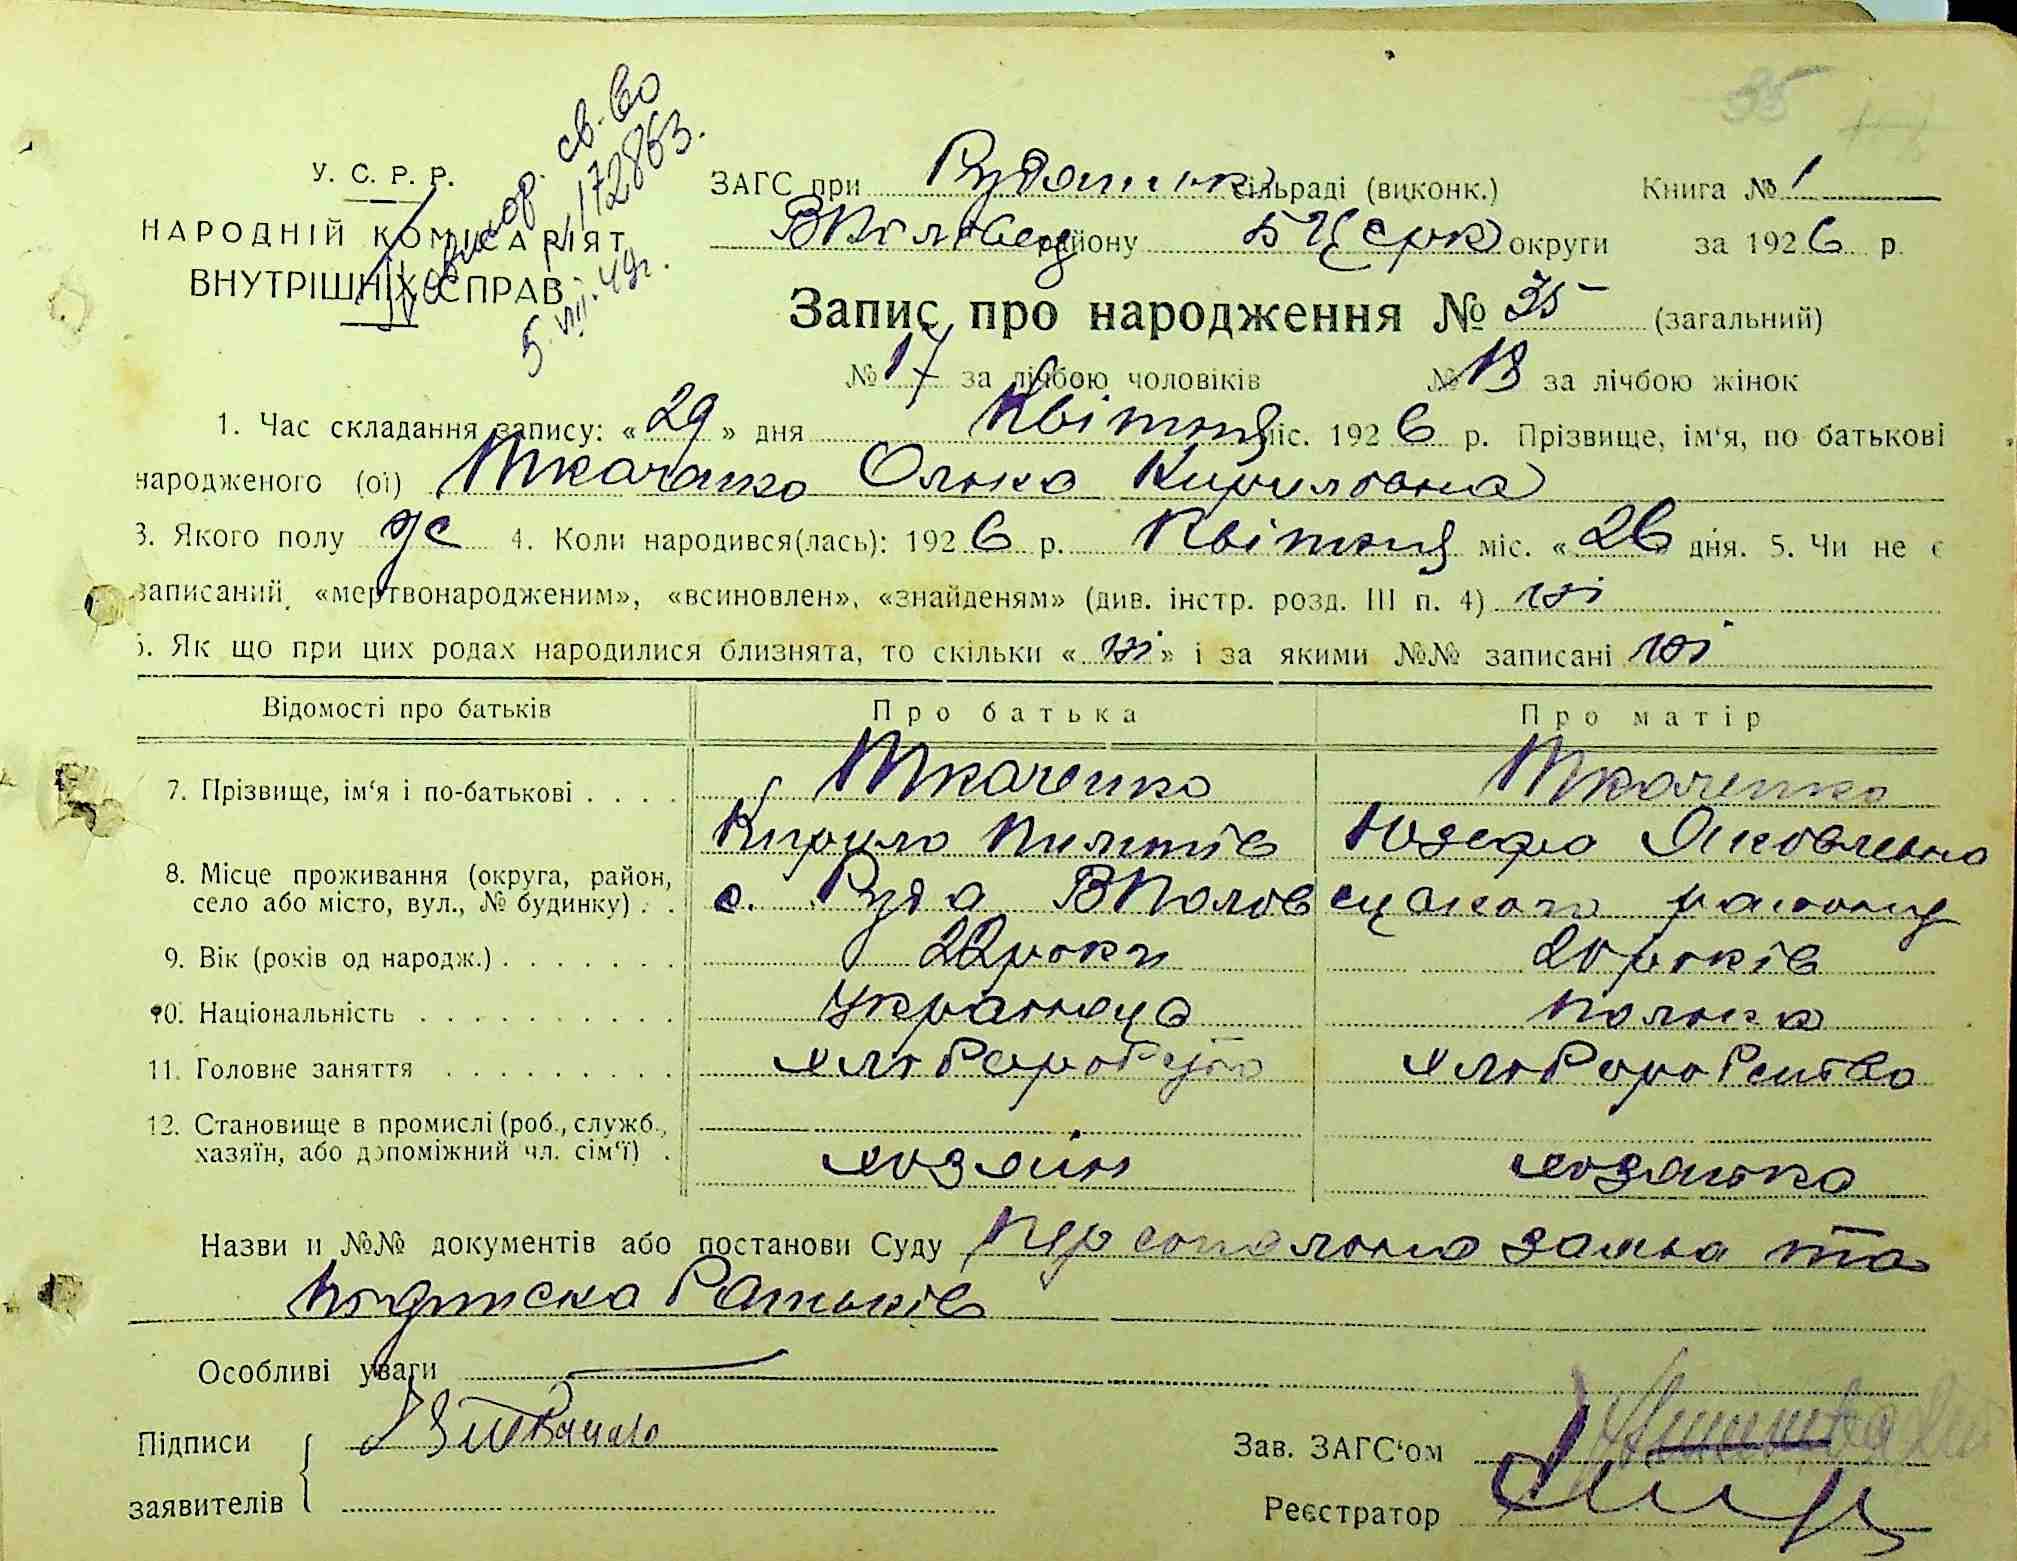 35
У. С. Р. Р.
НАРОДНІЙ КОМІСАРІЯТ
ВНУТРІШНІХ СПРАВ
св-во
172863.
5.VIII.49г.
ЗАГС при Рудянськ сільраді (виконк.) Книга № 1
ВПоловец району БЦерк округи за 1926 р.
Запис про народження № 35 (загальний)
№ 17 за лічбою чоловіків № 18 за лічбою жінок
1. Час складання запису: «29» дня Квітня міс. 1926 р. Прізвище, ім‘я, по батькові
народженого (ої) Ткаченко Олька Кириловна
3. Якого полу ж 4. Коли народився(лась): 1926 р. Квітня міс. «26» дня. 5. Чи не є
записаний „ «мертвонародженим», «всиновлен», «знайденям» (див. інстр. розд. III п. 4) ні
6. Як що при цих родах народилися близнята, то скільки «ні» і за якими №№ записані ні
Відомості про батьків Про батька Про матір
7. Прізвище, ім‘я і по-батькові . . . . Ткаченко Ткаченко
Кирило Пилипів Юзефа Яковлевна
8. Місце проживання (округа, район,
село або місто, вул., № будинку) . . с. Руда ВПоловецького району
9. Вік (років од народж.) . . . . . . . 22 роки 20 років
10. Національність . . . . . . . . . . Українець Полька
11. Головне заняття . . . . . . . . . хлібороб хліборобство
12. Становище в промислі (роб., служб.,
хазяїн, або допоміжний чл. сім‘ї) . хозяін хозяйка
Назви и №№ документів або постанови Суду Персональна заява та
підписка батьків
Особливі уваги
Підписи
заявителів
Зав. ЗАГС‘ом
Реєстратор